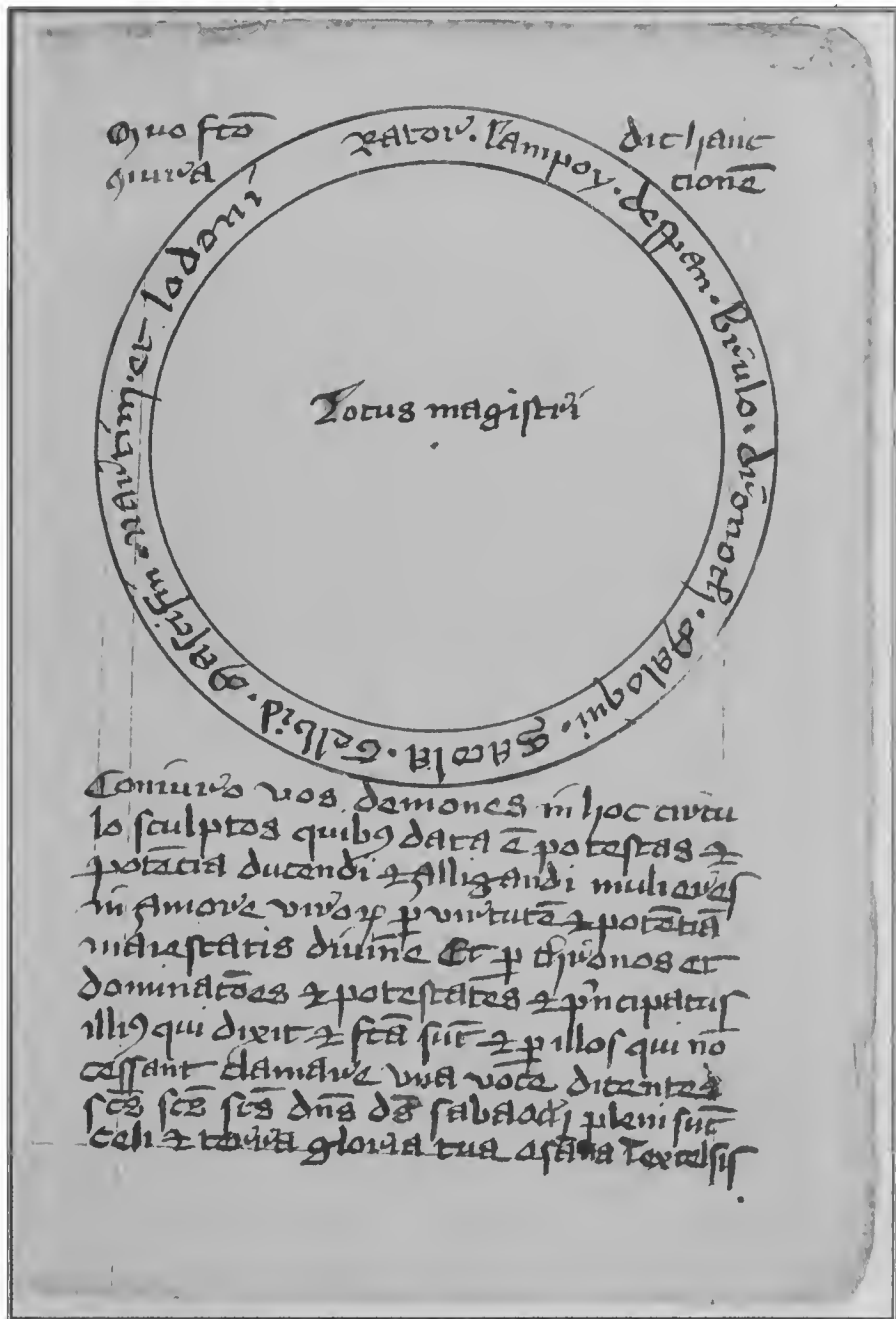 Quo fcō dic hanc
ꝯiura cionē
Rator. lampoy. despan. brūlo. drōnoth. maloqui. satola. gelbid. mascifin nartim. et lodoni
Locus magistri
Coniuro vos demones in hoc circu
lo sculptos quibꝫ data ē potestas ⁊
potēcia ducendi ⁊ alligandi mulieres
in amore viroꝝ ꝑ virtutē ⁊ potēciā
maiestatis diuine Et ꝑ thronos et
dominacōes ⁊ potestates ⁊ pⁱncipatus
illiꝰ qui dixit ⁊ fcā sūt ⁊ ꝑ illos qui nō
cessant clamare vna voce dicentes
scūs scūs scūs dn̄s ds̄ sabaoth pleni sūt
celi ⁊ terra gloria tua osāna ī excelsis